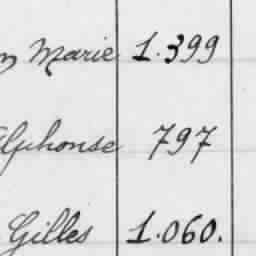 Marie 1.399
Alphonse 797
Gilles 1.060.